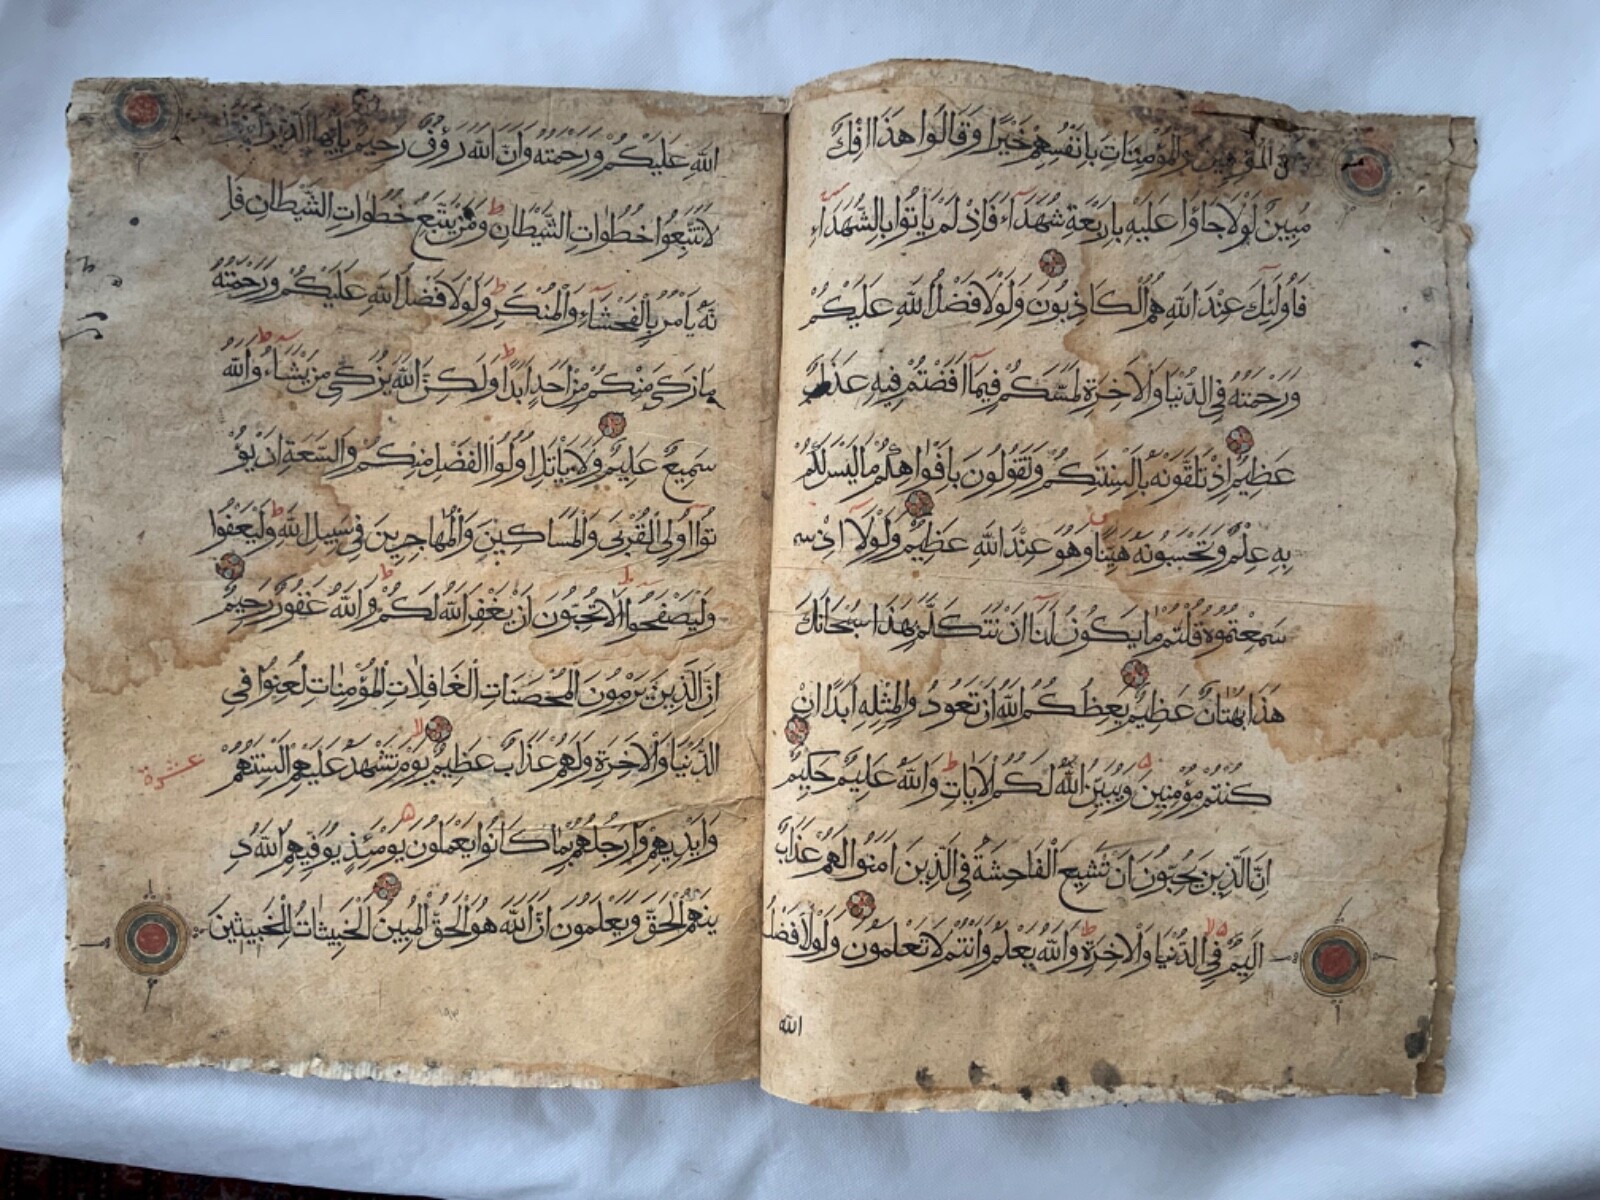 وَالْمُؤْمِنَاتُ بِاَنْفُسِهِمْ خَيْرًا وَقَالُوا هَذَا اِفْكٌ
مُبِينٌ لَوْلَا جَاؤُا عَلَيْهِ بِاَرْبَعَةِ شُهَدَآءَ فَاِذْ لَمْ يَاْتُوا بِالشُّهَدَآءِ
فَاُولَئِكَ عِنْدَ اللهِ هُمُ الْكَاذِبُونَ وَلَوْلَا فَضْلُ اللهِ عَلَيْكُمْ
وَرَحْمَتُهُ فِي الدُّنْيَا وَالْاَخِرَةِ لَمَسَّكُمْ فِيمَآ اَفَضْتُمْ فِيهِ عَذَابٌ
عَظِيمٌ اِذْ تَلَقَّوْنَهُ بِاَلْسِنَتِكُمْ وَتَقُولُونَ بِاَفْوَاهِكُمْ مَا لَيْسَ لَكُمْ
بِهِ عِلْمٌ وَتَحْسَبُونَهُ هَيِّنًا وَهُوَ عِنْدَ اللهِ عَظِيمٌ وَلَوْلَآ اِذْ سـ
سَمِعْتُمُوهُ قُلْتُمْ مَا يَكُونُ لَنَآ اَنْ نَتَكَلَّمَ بِهَذَا سُبْحَانَكَ
هَذَا بُهْتَانٌ عَظِيمٌ يَعِظُكُمُ اللهُ اَنْ تَعُودُوا لِمِثْلِهِ اَبَدًا اِنْ
كُنْتُمْ مُؤْمِنِينَ وَيُبَيِّنُ اللهُ لَكُمُ الْاَيَاتِ ط وَاللهُ عَلِيمٌ حَكِيمٌ
اِنَّ الَّذِينَ يُحِبُّونَ اَنْ تَشِيعَ الْفَاحِشَةُ فِي الَّذِينَ اَمَنُوا لَهُمْ عَذَابٌ
اَلِيمٌ فِي الدُّنْيَا وَالْاَخِرَةِ ط وَاللهُ يَعْلَمُ وَاَنْتُمْ لَا تَعْلَمُونَ وَلَوْلَا فَضْلُ
الله
اللهِ عَلَيْكُمْ وَرَحْمَتُهُ وَاَنَّ اللهَ رَؤُفٌ رَحِيمٌ يَا اَيُّهَا الَّذِينَ اَمَنُوا
لَا تَتَّبِعُوا خُطُوَاتِ الشَّيْطَانِ ط وَمَنْ يَتَّبِعْ خُطُوَاتِ الشَّيْطَانِ فَاِ
نَّهُ يَاْمُرُ بِالْفَحْشَآءِ وَالْمُنْكَرِ ط وَلَوْلَا فَضْلُ اللهِ عَلَيْكُمْ وَرَحْمَتُهُ
مَا زَكَى مِنْكُمْ مِنْ اَحَدٍ اَبَدًا ط وَلَكِنَّ اللهَ يُزَكِّي مَنْ يَشَآءُ ط وَاللهُ
سَمِيعٌ عَلِيمٌ وَلَا يَاْتَلِ اُولُوا الْفَضْلِ مِنْكُمْ وَالسَّعَةِ اَنْ يُؤْ
تُوآ اُولِي الْقُرْبَى وَالْمَسَاكِينَ وَالْمُهَاجِرِينَ فِي سَبِيلِ اللهِ ط وَلْيَعْفُوا
وَلْيَصْفَحُوا ط اَلَا تُحِبُّونَ اَنْ يَغْفِرَ اللهُ لَكُمْ ط وَاللهُ غَفُورٌ رَحِيمٌ
اِنَّ الَّذِينَ يَرْمُونَ الْمُحْصَنَاتِ الْغَافِلَاتِ الْمُؤْمِنَاتِ لُعِنُوا فِي
الدُّنْيَا وَالْاَخِرَةِ وَلَهُمْ عَذَابٌ عَظِيمٌ يَوْمَ تَشْهَدُ عَلَيْهِمْ اَلْسِنَتُهُمْ
عشرة
وَاَيْدِيهِمْ وَاَرْجُلُهُمْ بِمَا كَانُوا يَعْمَلُونَ يَوْمَئِذٍ يُوَفِّيهِمُ اللهُ دِ
ينَهُمُ الْحَقَّ وَيَعْلَمُونَ اَنَّ اللهَ هُوَ الْحَقُّ الْمُبِينُ اَلْخَبِيثَاتُ لِلْخَبِيثِينَ